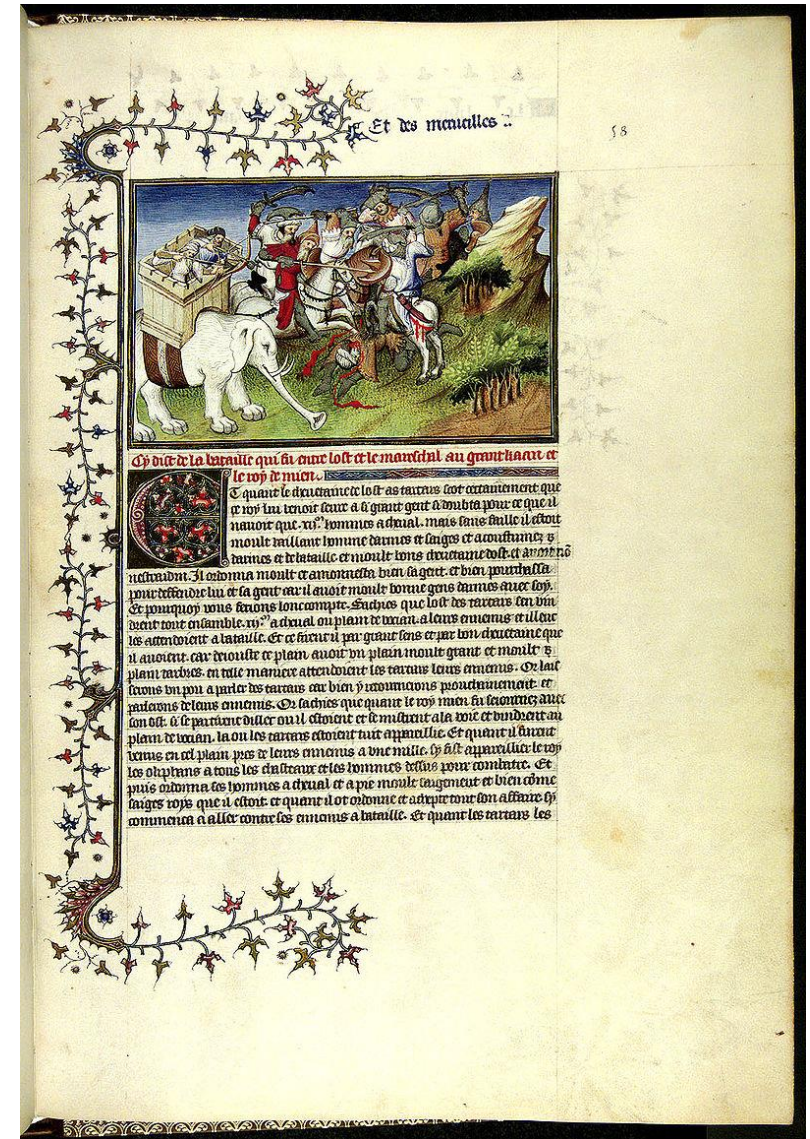 Et des merueilles
58
Cy dist de la bataille qui fu entre lost et le mareschal au grant kaan et
le roy de mien.
Et quant le cheuetaine de lost as tartars scot certainement que
ce roy lui venoit seure a si grant gent si doubta pour ce que il
nauoit que .xii.m hommes a cheual. mais sans faille il estoit
moult vaillant homme darmes et saiges et acoustumez
darmes et de bataille et moult bons cheuetaine dost. et auoit nō
nestraidin. Il ordonna moult et amonnesta bien sa gent. et bien pourchassa
pour deffendre lui et sa gent car il auoit moult bonne gens darmes auec soy.
Et pourquoy vous ferons lonc compte. Sachies que lost des tartars sen vin
drent tout ensamble .xii.m a cheual ou plain de vocian. a leurs ennemis et illeuc
les attendoient a bataille. Et ce firent il par grant sens et par bon cheuetaine que
il auoient. car deiouste ce plain auoit vn plain moult grant et moult
plain darbres. en telle maniere attendoient les tartars leurs ennemis. Or lais
serons vn pou a parler des tartars car bien y retournerons prouchainement. et
parlerons de leurs ennemis. Or sachies que quant le roy mien fu seiornez auec
son ost. si se partirent dillec ou il estoient et se mistrent a la voie et vindrent au
plain de vocian. la ou les tartars estoient tuit appareillie. Et quant il furent
venus en cel plain pres de leurs ennemis a vne mille. sy fist appareillier le roy
les oliphans a tous les chasteaux et les hommes dessus pour combatre. Et
puis ordonna ses hommes a cheual et a pie moult saigement et bien cōme
saiges roys que il estoit. et quant il ot ordonne et adrepte tout son affaire sy
commenca a aller contre ses ennemis a bataille. Et quant les tartars les